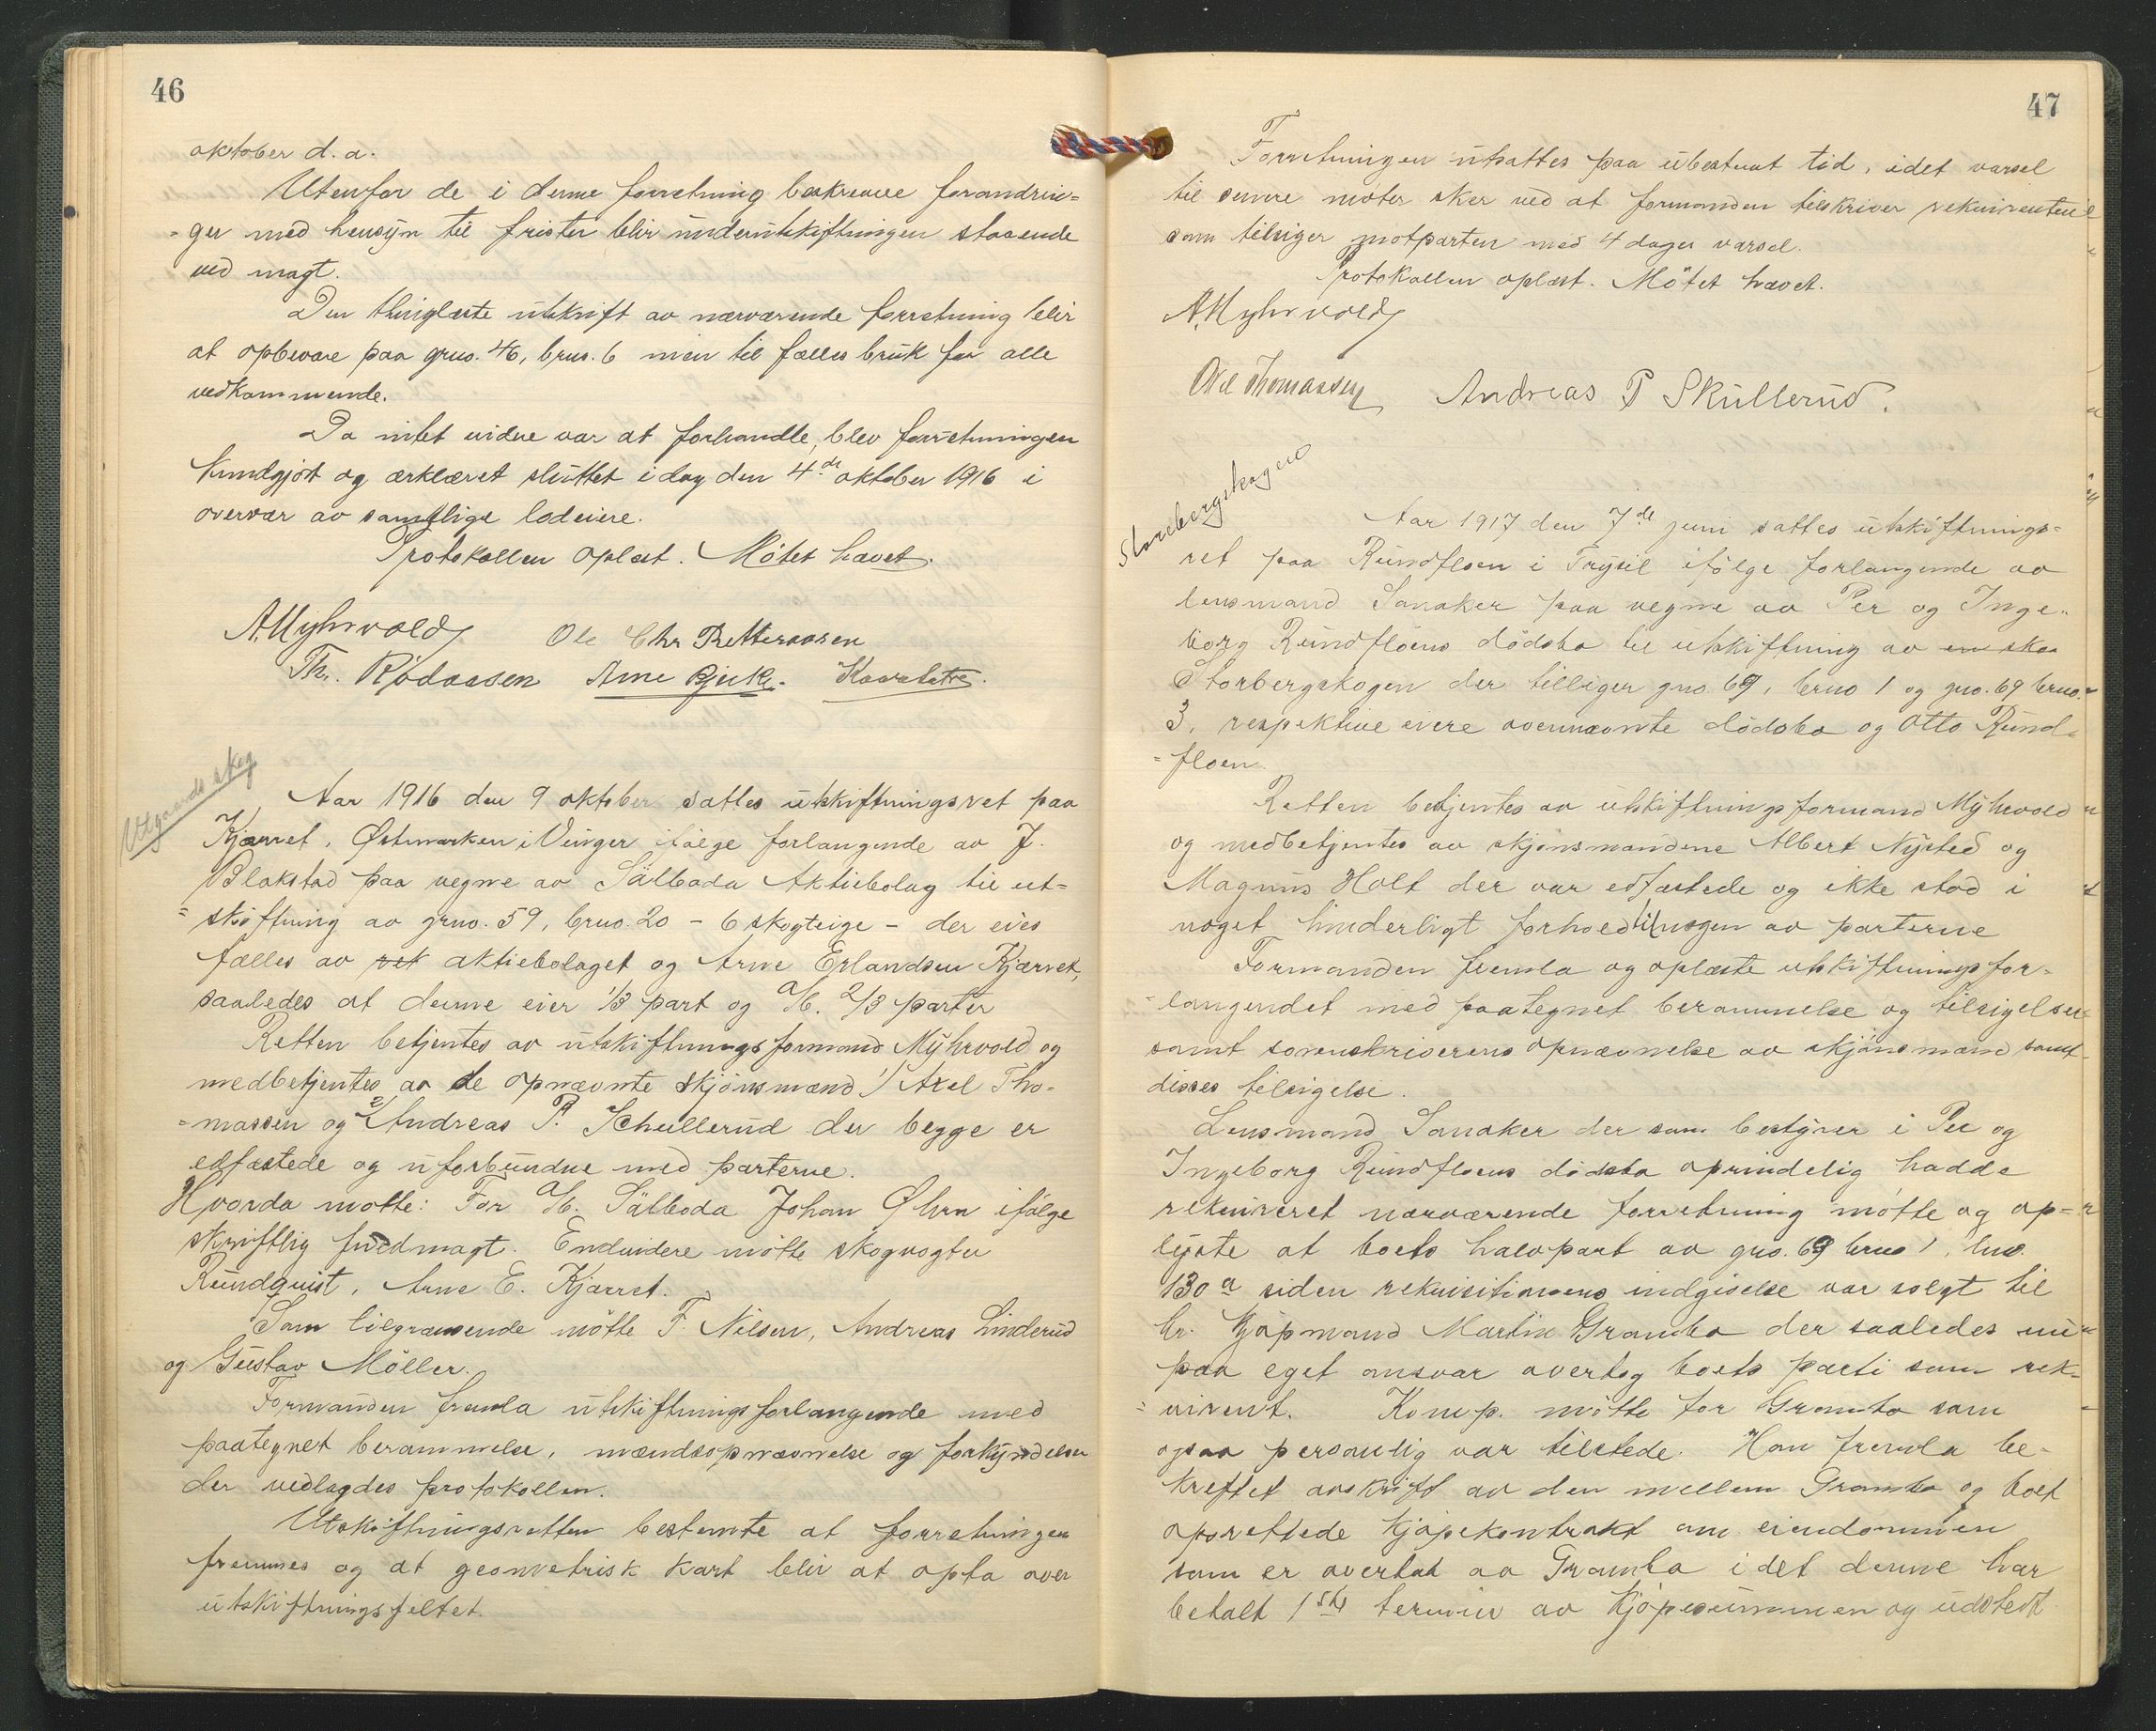 46
oktober d. a.
Utenfor de i denne forretning beskrevne forandrin=
=ger med hensyn til frister blir underutskiftningen staaende
ved magt.
Den thinglæste utskrift av nærværende forretning blir
at opbevare paa grno. 46, brno. 6 men til fælles bruk for alle
vedkommende.
Da intet videre var at forhandle, blev forretningen
kundgjort og erklæret sluttet idag den 4de oktober 1916 i
overvær av samtlige lodeiere.
Protokollen oplæst. Møtet hævet.
A. Myhrvold Ole Chr Retteraasen
Th. Rødaasen Arne Bjerke. Kaarstetre.
Utgaards skog
Aar 1916 den 9 oktober sattes utskiftningsret paa
Kjærret, Østmarken i Vinger ifølge forlangende av J.
Blakstad paa vegne av Sälboda Aktiebolag til ut=
=skiftning av grno. 59, brno. 20 – 6 skogteige – der eies
fælles av ret aktiebolaget og Arne Erlandsen Kjærret,
saaledes at denne eier 1/3 part og A/B. 2/3 parter
Retten betjentes av utskiftningsformand Myhrvold og
medbetjentes av de opnævnte skjønsmænd 1/ Axel Tho=
=massen og 2/ Andreas P. Schullerud der begge er
edfæstede og uforbundne med parterne.
Hvorda møtte: For A/B. Sälboda Johan Øhrn ifølge
skriftlig fuldmagt. Endvidere møtte skogvogter
Rundquist, Arne E. Kjærret.
Som tilgrænsende møtte F. Nilsen, Andreas Linderud
og Gustav Möller.
Formanden fremla utskiftningsforlangende med
paategnet berammelse, mændsopnævnelse og forkyndelse
der vedlagdes protokollen.
Utskiftningsretten bestemte at forretningen
fremmes og at geometrisk kart blir at opta over
utskiftningsfeltet.
47
Forretningen utsattes paa ubestemt tid, idet varsel
til senere møter sker ved at formanden tilskriver rekvirenten
som tilsiger motparten med 4 dages varsel.
Protokollen oplæst. Møtet hævet.
A. Myhrvold
Axel Thomassen Andreas P Skullerud.
Storebergskogen
Aar 1917 den 7de juni sattes utskiftnings=
ret paa Rundfloen i Trysil ifølge forlangende av
lensmand Sanaker paa vegne av Per og Inge=
borg Rundfloens dødsbo til utskiftning av en sko
Storbergskogen der tilligger gno. 69, brno 1 og gno. 69 brno.
3, respektive eiere ovennævnte dødsbo og Otto Rund=
=floen.
Retten betjentes av utskiftningsformand Myhrvold
og medbetjentes av skjønsmændene Albert Nysted og
Magnus Holt der var edfæstede og ikke stod i
noget hinderligt forhold til nogen av parterne
Formanden fremla og oplæste utskiftningsfor=
=langendet med paategnet berammelse og tilsigelse
samt sorenskriverens opnævnelse av skjønsmænd samt
disses tilsigelse.
Lensmand Sanaker der som bestyrer i Per og
Ingeborg Rundfloens dødsbo oprindelig hadde
rekvireret nærværende forretning møtte og op=
lyste at boets halvpart av gno. 69 brno 1, lno.
130 a siden rekvisitionens indgivelse var solgt til
hr. Kjøpmand Martin Grambo der saaledes nu
paa eget ansvar overtog boets parti som rek=
=virent. Komp. møtte for Grambo som
ogsaa personlig var tilstede. Han fremla be=
kreftet avskrift av den mellem Grambo og boet
oprettede kjøpekontrakt om eiendommen
som er overtat av Grambo idet denne har
betalt 1ste termin av kjøpesummen og utstedt